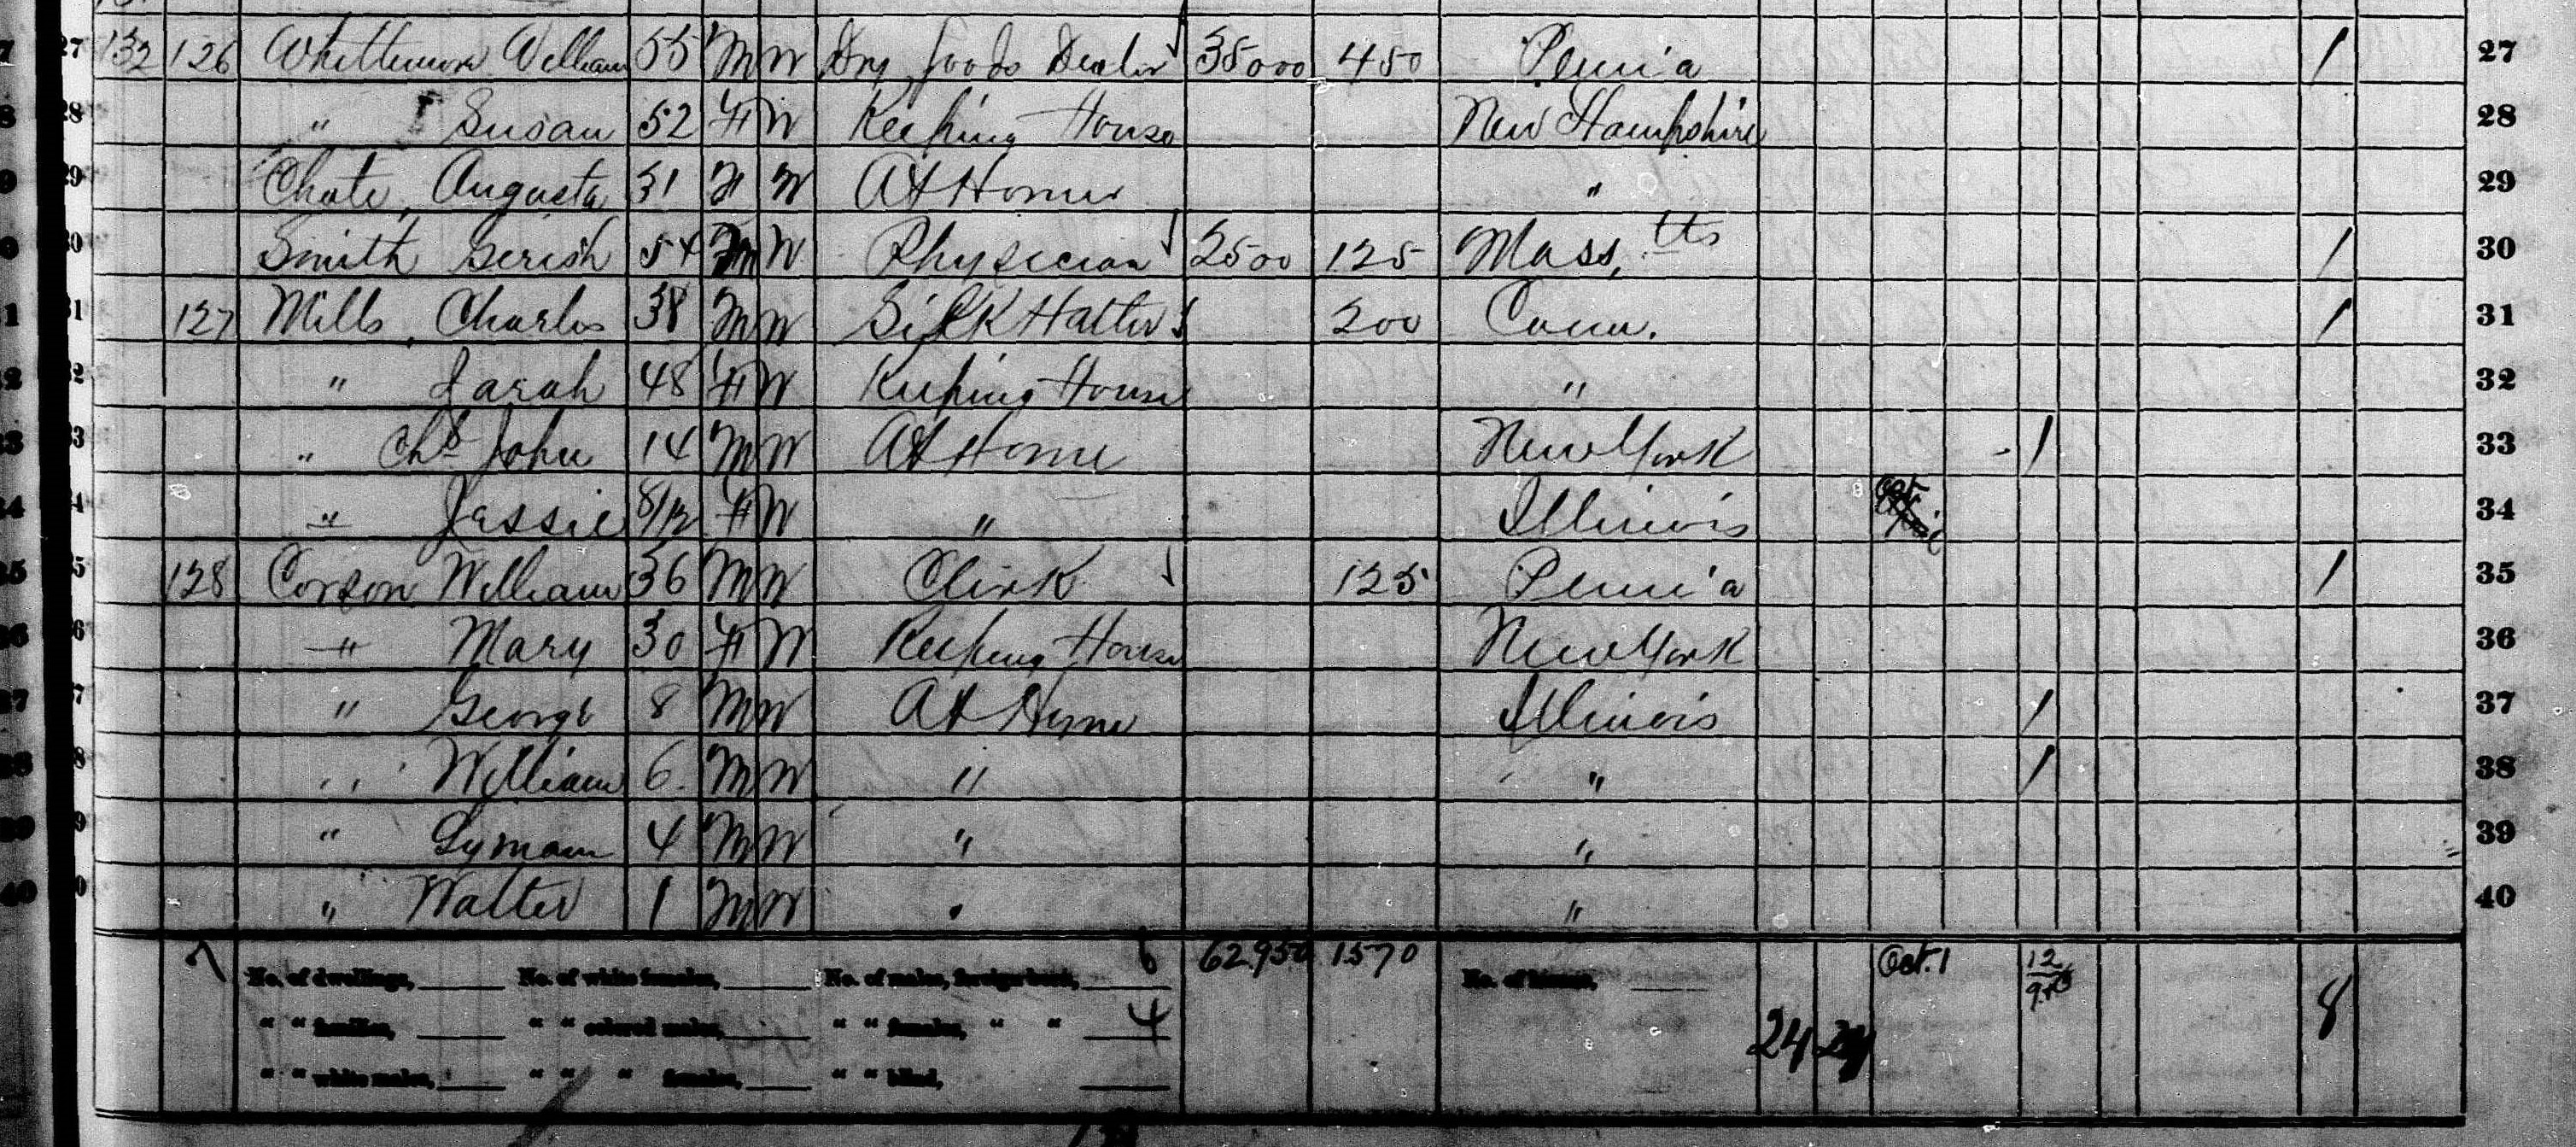 27 132 126 Whittemore William 55 M W Dry Goods Dealer 35000 450 Penn'a 1 27
28 " Susan 52 F W Keeping House New Hampshire 28
29 Chate, Augusta 31 F W At Home " 29
30 Smith Gerish 54 M W Physician 2500 125 Mass.tts 1 30
31 127 Mills, Charles 38 M W Silk Hatter 200 Conn. 1 31
32 " Sarah 48 F W Keeping House " 32
33 " Chs John 14 M W At Home New York 1 33
34 " Jessie 8/12 F W " Illinois Oct. 34
35 128 Corson William 36 M W Clerk 125 Penn'a 1 35
36 " Mary 30 F W Keeping House New York 36
37 " George 8 M W At Home Illinois 1 37
38 " William 6 M W " " 1 38
39 " Lyman 4 M W " " 39
40 " Walter 1 M W " " 40
7 No. of dwellings, No. of white females, No. of males, foreign born, 6 62950 1570 No. of insane, Oct. 1 12
" " families, " " colored males, " " females, " " 4 24 8
" " white males, " " " females, " " blind,